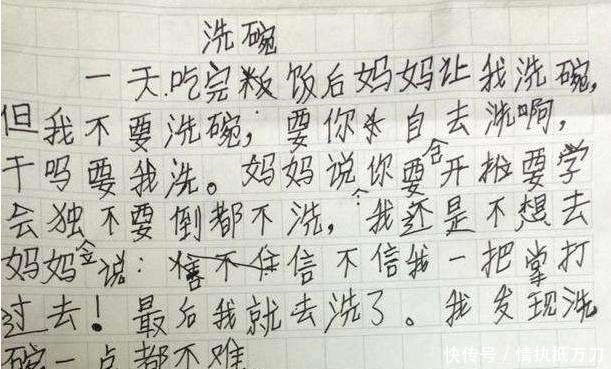 洗碗
一天.吃完饭后妈妈让我洗碗,
但我不要洗碗,要你自去洗啊,
干吗要我洗。妈妈说你要开始要学
会独不要倒都不洗,我还是不想去
妈妈说:信不信我一把掌打
过去!最后我就去洗了。我发现洗
碗一点都不难
快传号/情执抵万力